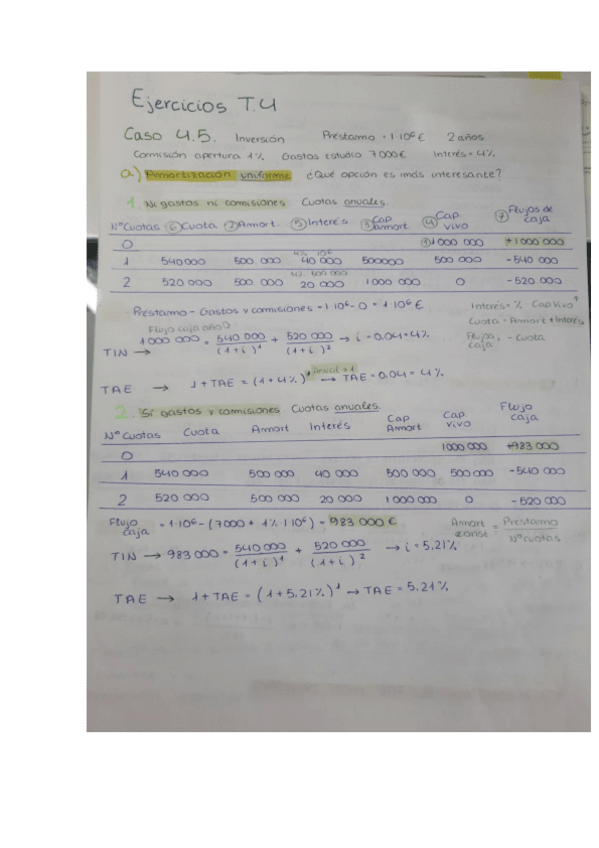 Ejercicios T.4
Caso 4.5. Inversión Préstamo = 1·10⁶ € 2 años
Comisión apertura 1% Gastos estudio 7000€ Interés = 4%
a) Amortización uniforme ¿Qué opción es más interesante?
1. Ni gastos ni comisiones Cuotas anuales.
NºCuotas ⑥Cuota ②Amort. ⑤Interés ③Cap amort. ④Cap vivo ⑦Flujos de caja
0 ①1000 000 +1 000 000
4% 10⁶
1 540000 500 000 40 000 500000 500 000 -540 000
4% 500 000
2 520 000 500 000 20 000 1 000 000 0 -520 000
Préstamo - Gastos y comisiones = 1·10⁶ - 0 = 1·10⁶ € Interés = % · Cap Vivo
Flujo caja año 0 Cuota = Amort + Interés
TIN → 1 000 000 = 540 000/(1+i)¹ + 520 000/(1+i)² → i = 0.04 = 4% Flujos caja = - Cuota
Anual = 1
TAE → 1 + TAE = (1 + 4%)¹ → TAE = 0.04 = 4%
2. Sí gastos y comisiones Cuotas anuales.
Nº Cuotas Cuota Amort Interés Cap Amort Cap vivo Flujo caja
0 1000 000 +983 000
1 540 000 500 000 40 000 500 000 500 000 -540 000
2 520 000 500 000 20 000 1 000 000 0 -520 000
Flujo caja = 1·10⁶ - (7000 + 1% 1·10⁶) = 983 000 € Amort const = Préstamo/Nº cuotas
TIN → 983 000 = 540 000/(1+i)¹ + 520 000/(1+i)² → i = 5.21%
TAE → 1 + TAE = (1 + 5.21%)¹ → TAE = 5.21%